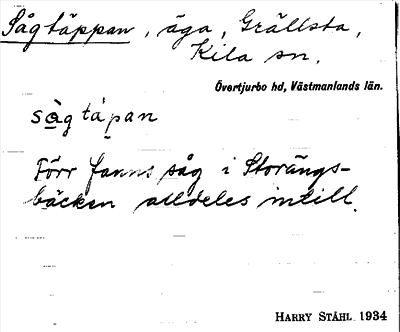 Sågtäppan, äga, Grällsta,
Kila sn.
Övertjurbo hd, Västmanlands län.
så̀g tápan
Förr fanns såg i Storängs-
bäcken alldeles intill.
HARRY STÅHL 1934